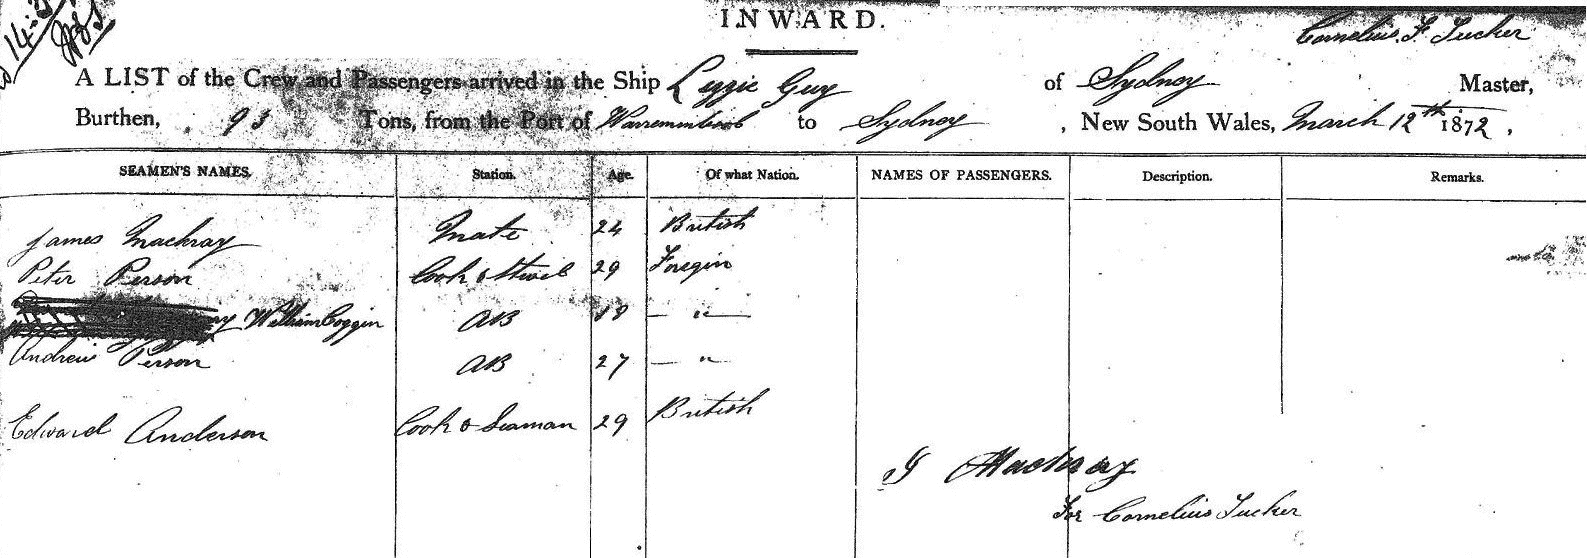 INWARD.
Cornelius F Tucker
A LIST of the Crew and Passengers arrived in the Ship Lizzie Guy of Sydney Master,
Burthen, 93 Tons, from the Port of to Sydney, New South Wales, March 12th 1872,
SEAMEN'S NAMES. Station. Age. Of what Nation. NAMES OF PASSENGERS. Description. Remarks.
James Mackray Mate 24 British
Peter Person Cook & 29 Foregin
William Coggin AB 18 — " —
Andrew Person AB 27 — "
Edward Anderson Cook & Seaman 29 British
J Mackray
For Cornelius Tucker